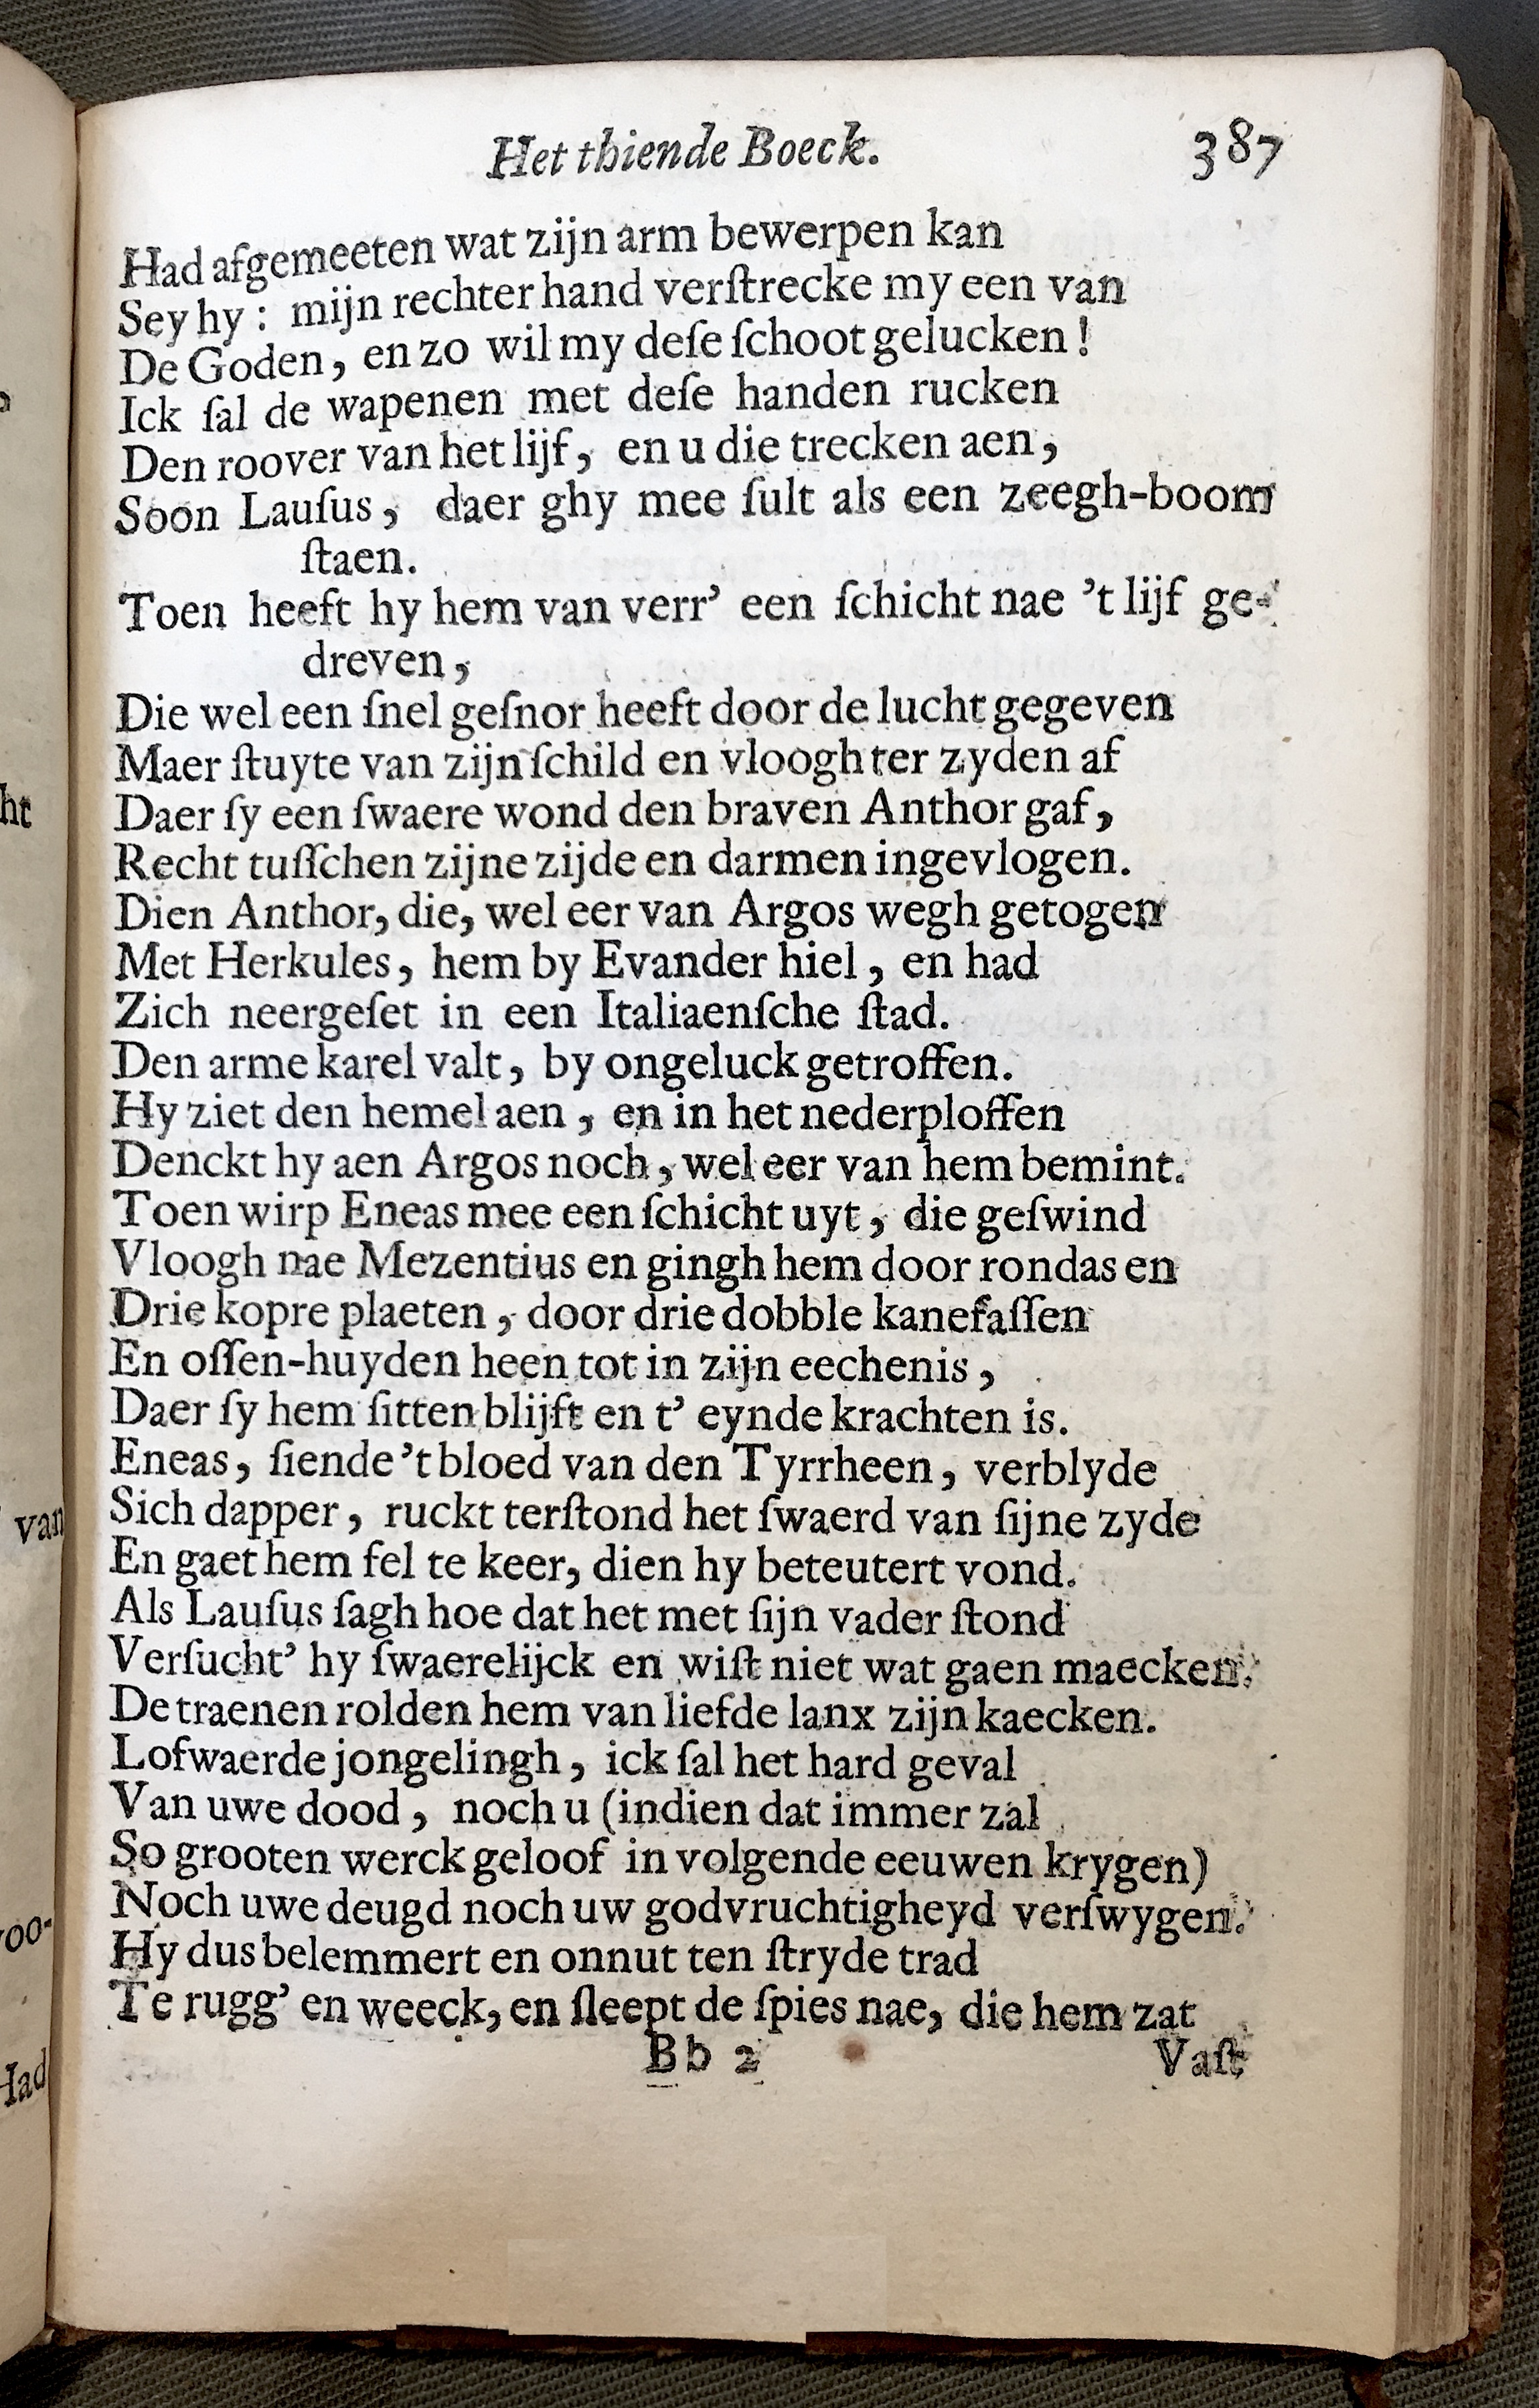 Het thiende Boeck. 387
Had afgemeeten wat zijn arm bewerpen kan
Sey hy : mijn rechter hand verſtrecke my een van
De Goden, en zo wil my deſe ſchoot gelucken !
Ick ſal de wapenen met deſe handen rucken
Den roover van het lijf, en u die trecken aen,
Soon Lauſus, daer ghy mee ſult als een zeegh-boom
ſtaen.
Toen heeft hy hem van verr' een ſchicht nae 't lijf ge-
dreven,
Die wel een ſnel geſnor heeft door de lucht gegeven
Maer ſtuyte van zijn ſchild en vloogh ter zyden af
Daer ſy een ſwaere wond den braven Anthor gaf,
Recht tuſſchen zijne zijde en darmen ingevlogen.
Dien Anthor, die, wel eer van Argos wegh getogen
Met Herkules, hem by Evander hiel, en had
Zich neergeſet in een Italiaenſche ſtad.
Den arme karel valt, by ongeluck getroffen.
Hy ziet den hemel aen, en in het nederploffen
Denckt hy aen Argos noch, wel eer van hem bemint.
Toen wirp Eneas mee een ſchicht uyt, die geſwind
Vloogh nae Mezentius en gingh hem door rondas en
Drie kopre plaeten, door drie dobble kanefaſſen
En oſſen-huyden heen tot in zijn eechenis,
Daer ſy hem ſitten blijft en t' eynde krachten is.
Eneas, ſiende 't bloed van den Tyrrheen, verblyde
Sich dapper, ruckt terſtond het ſwaerd van ſijne zyde
En gaet hem fel te keer, dien hy beteutert vond.
Als Lauſus ſagh hoe dat het met ſijn vader ſtond
Verſucht' hy ſwaerelijck en wiſt niet wat gaen maecken.
De traenen rolden hem van liefde lanx zijn kaecken.
Lofwaerde jongelingh, ick ſal het hard geval
Van uwe dood, noch u (indien dat immer zal
So grooten werck geloof in volgende eeuwen krygen)
Noch uwe deugd noch uw godvruchtigheyd verſwygen.
Hy dus belemmert en onnut ten ſtryde trad
Te rugg' en weeck, en ſleept de ſpies nae, die hem zat
Bb 2 Vaſt
ht
van
voo-
Had